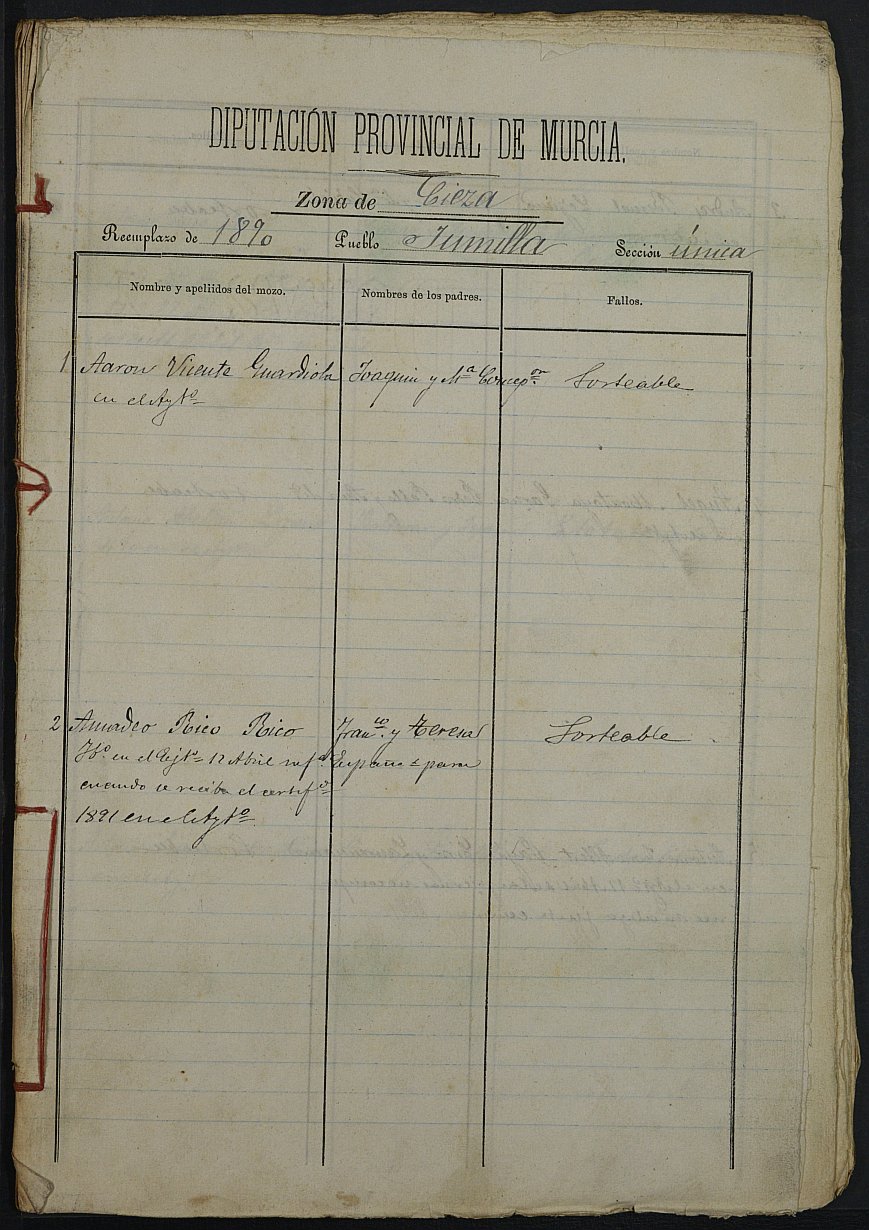 DIPUTACIÓN PROVINCIAL DE MURCIA.
Zona de Cieza
Reemplazo de 1890 Pueblo Jumilla Sección única
Nombre y apellidos del mozo. Nombres de los padres. Fallos.
1 Aaron Vicente Guardiola Joaquin y Mª Concepon. Sorteable
en el Aytº
2 Amadeo Rico Rico Franco. y Teresa Sorteable.
en el 12 Abril España para
cuando se reciba el certifdo
1891 en el Aytº